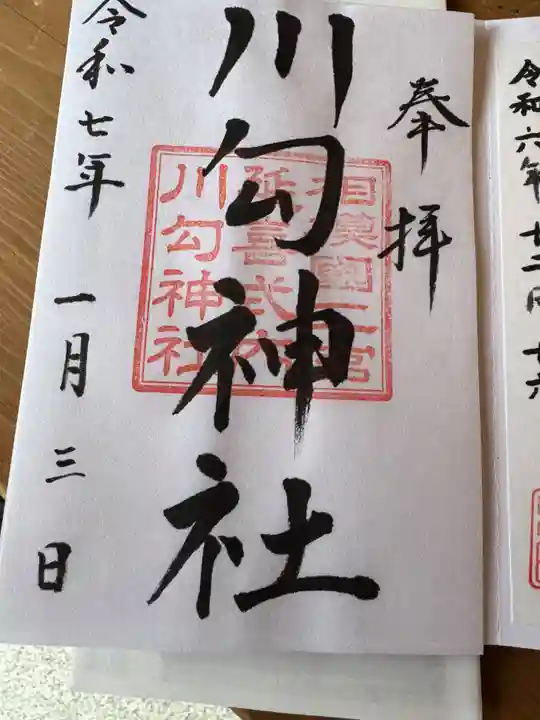 令和六年十二月十六
奉拝
川勾神社
相模國二宮
延喜式内
川勾神社
令和七年一月三日